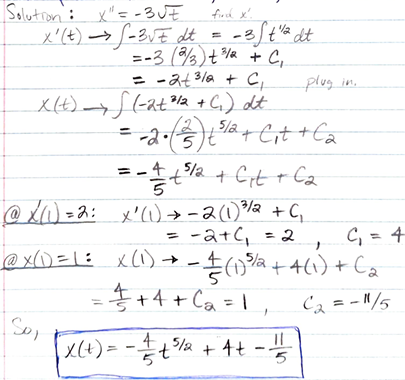 Solution: x'' = -3√t find x'
x'(t) → ∫-3√t dt = -3∫t^1/2 dt
= -3 (2/3) t^3/2 + C₁
= -2t^3/2 + C₁ plug in.
x(t) → ∫(-2t^3/2 + C₁) dt
= -2·(2/5)t^5/2 + C₁t + C₂
= -4/5 t^5/2 + C₁t + C₂
@ x'(1)=2: x'(1) → -2(1)^3/2 + C₁
= -2+C₁ = 2 , C₁ = 4
@ x(1)=1: x(1) → -4/5(1)^5/2 + 4(1) + C₂
= 4/5 + 4 + C₂ = 1 , C₂ = -11/5
So,
x(t) = -4/5 t^5/2 + 4t - 11/5